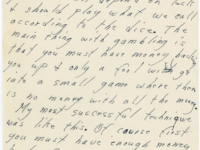 should play what we call
according to the dice. The
main thing with gambling is
that you must have money back
you up & only a fool will go
into a small game where there
is no money with all the
My most successful technique
was like this. Of course first
you must have enough money